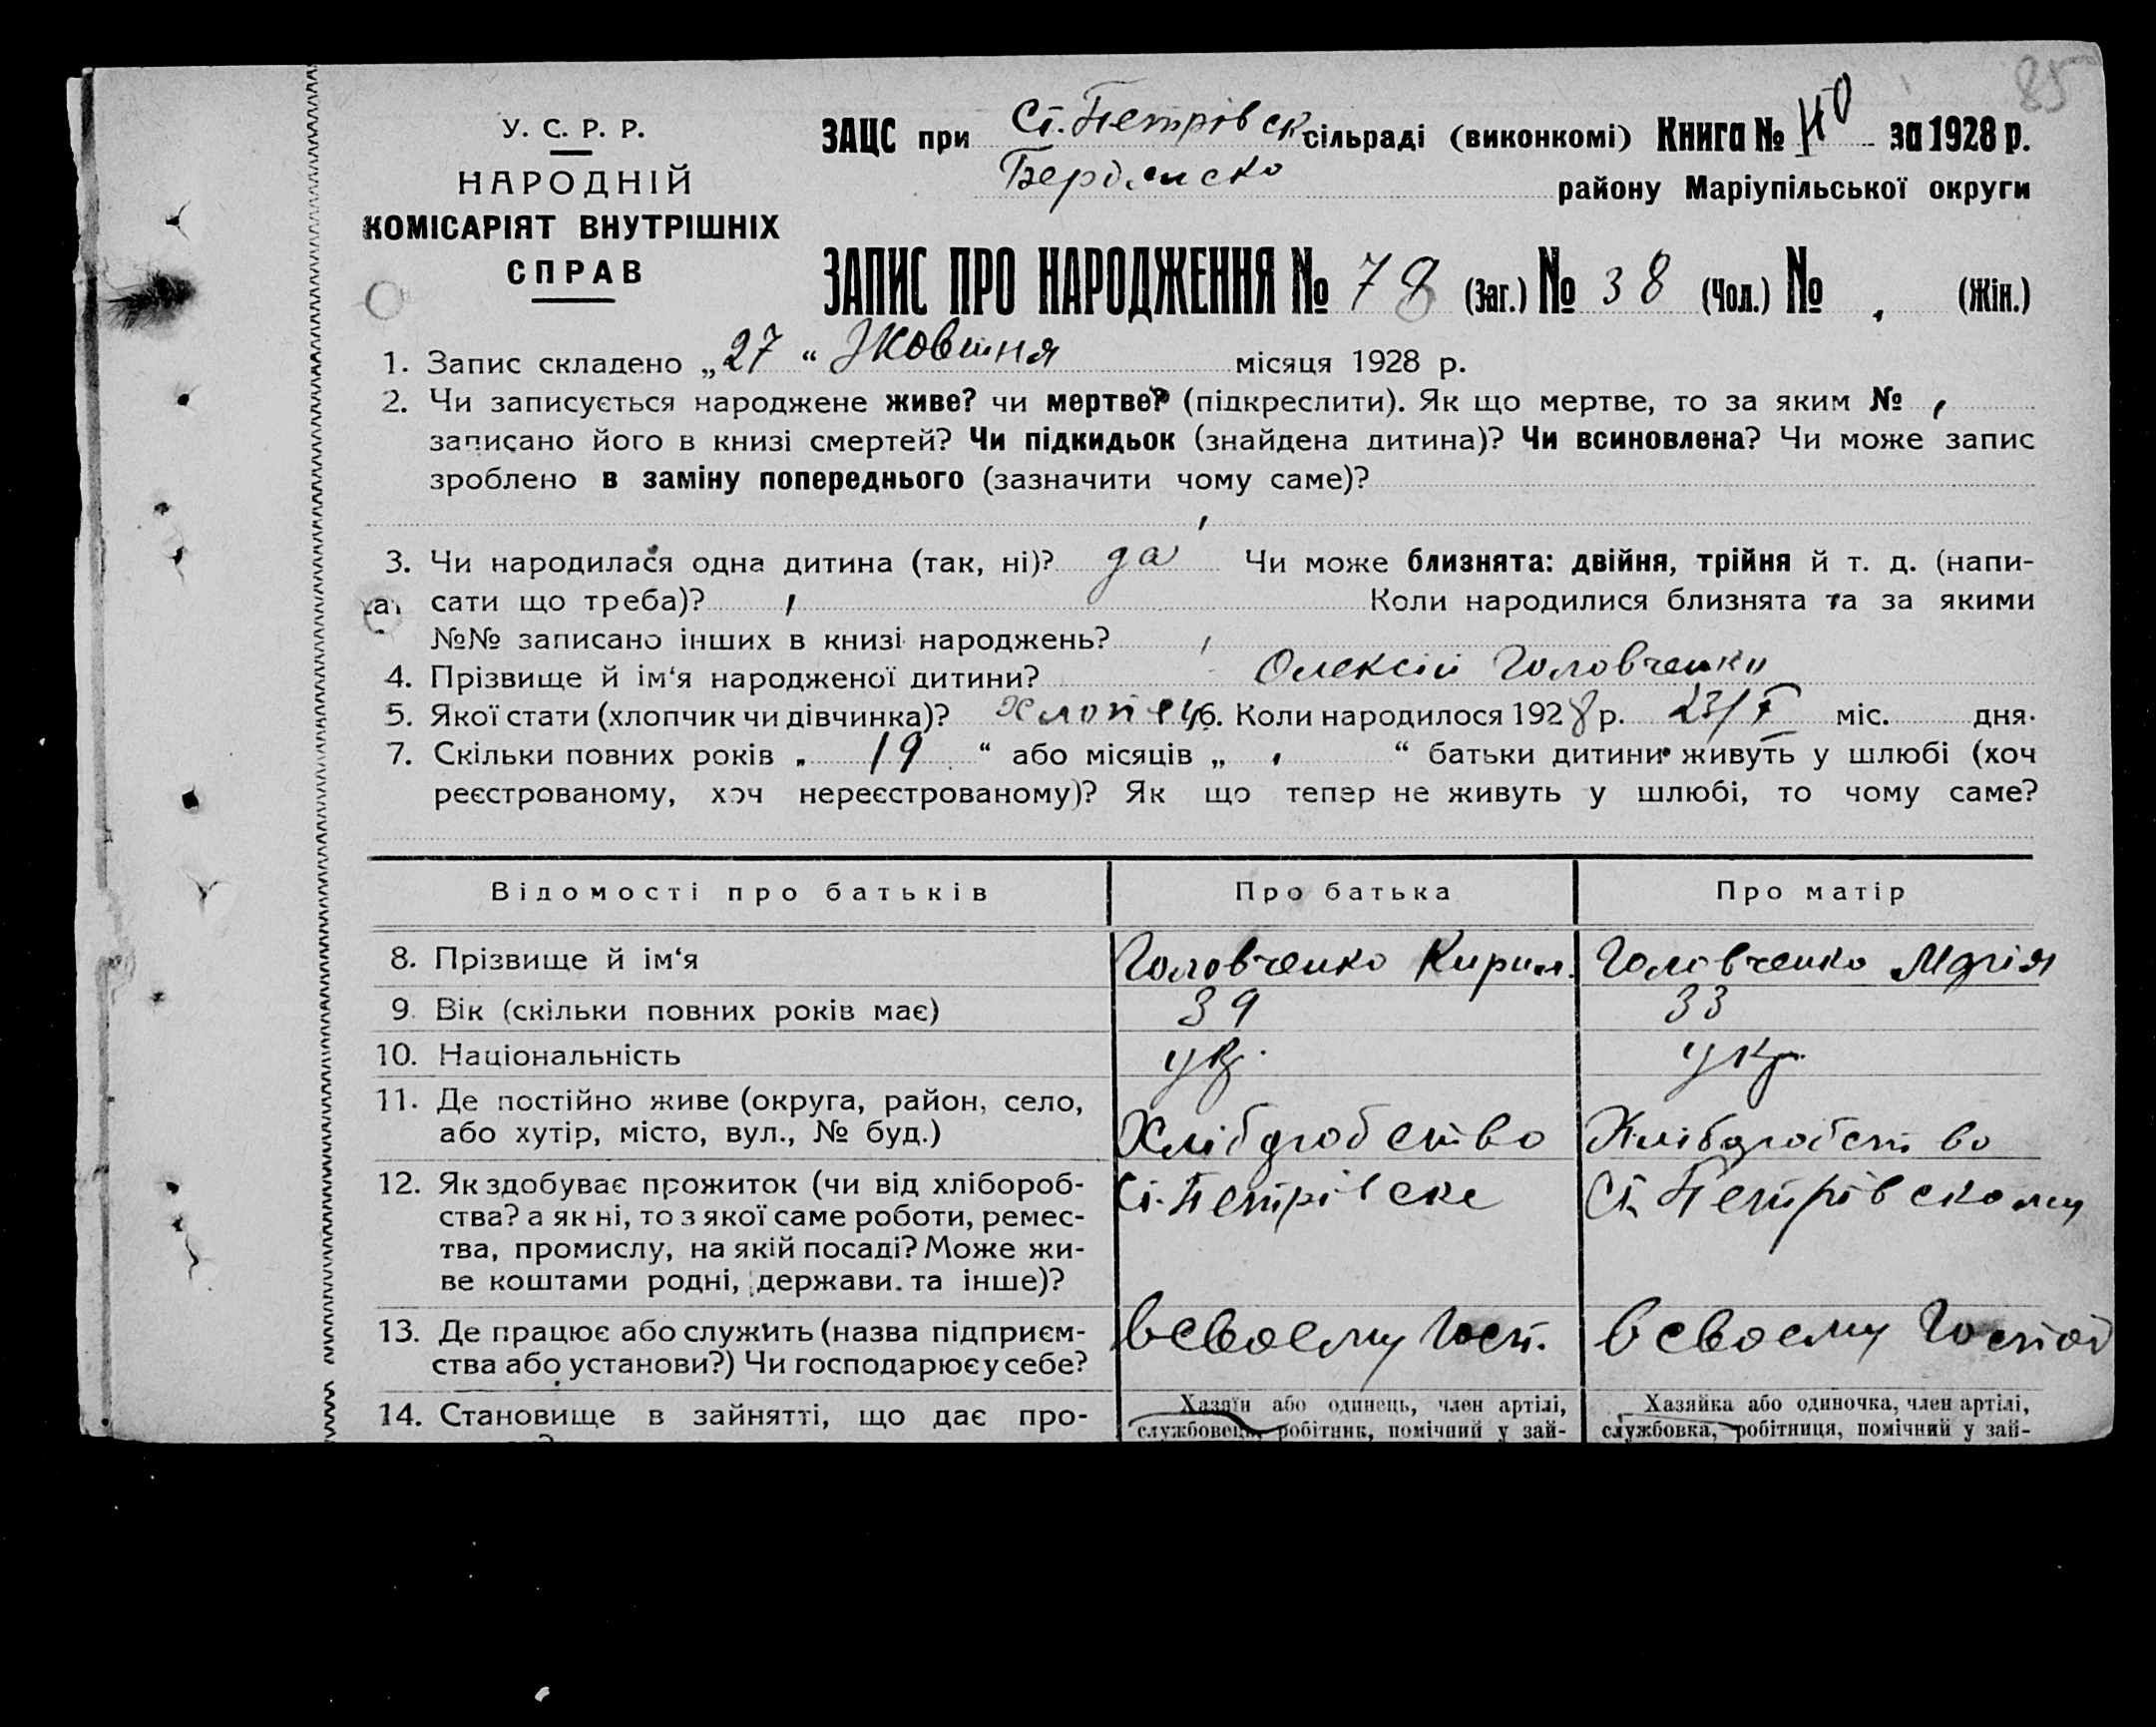 85
У. С. Р. Р.
НАРОДНІЙ
КОМІСАРІЯТ ВНУТРІШНІХ
СПРАВ
ЗАЦС при Ст. Петрівск сільраді (виконкомі) Книга № за 1928 р.
Бердянско району Маріупільської округи
ЗАПИС ПРО НАРОДЖЕННЯ № 78 (Заг.) № 38 (Чол.) № (Жін.)
1. Запис складено „27“ Жовтня місяця 1928 р.
2. Чи записується народжене живе? чи мертве? (підкреслити). Як що мертве, то за яким №
записано його в книзі смертей? Чи підкидьок (знайдена дитина)? Чи всиновлена? Чи може запис
зроблено в заміну попереднього (зазначити чому саме)?
3. Чи народилася одна дитина (так, ні)? да Чи може близнята: двійня, трійня й т. д. (напи-
сати що треба)? Коли народилися близнята та за якими
№№ записано інших в книзі народжень?
4. Прізвище й ім‘я народженої дитини? Олексій Головченко
5. Якої стати (хлопчик чи дівчинка)? хлопець 6. Коли народилося 1928 р. 23/X міс. дня.
7. Скільки повних років „ 19 “ або місяців „ “ батьки дитини живуть у шлюбі (хоч
реєстрованому, хоч нереєстрованому)? Як що тепер не живуть у шлюбі, то чому саме?
Відомості про батьків Про батька Про матір
8. Прізвище й ім‘я Головченко Кирил. Головченко Марія
9. Вік (скільки повних років має) 39 33
10. Національність укр. укр.
11. Де постійно живе (округа, район, село,
або хутір, місто, вул., № буд.) Хлібдробство Хлібдробство
12. Як здобуває прожиток (чи від хлібороб- Ст. Петрівске Ст. Петрівскому
ства? а як ні, то з якої саме роботи, ремес-
тва, промислу, на якій посаді? Може жи-
ве коштами родні, держави. та інше)?
13. Де працює або служить (назва підприєм- всвоему Госп. всвоему Господ
ства або установи?) Чи господарює у себе?
14. Становище в зайнятті, що дає про- Хазяїн або одинець, член артілі, Хазяйка або одиночка, член артілі,
службовець, робітник, помічний у зай- службовка, робітниця, помічний у зай-